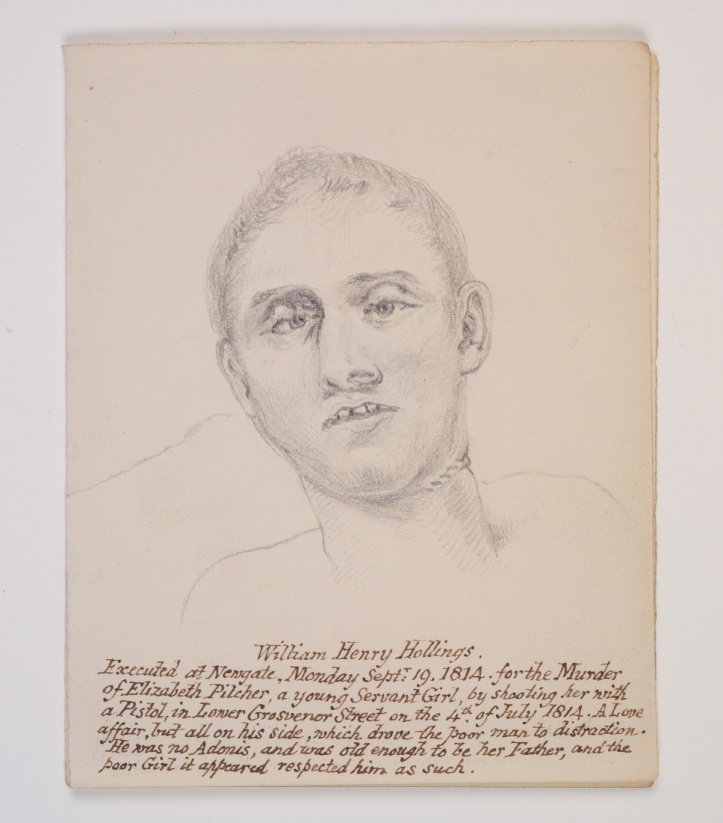 William Henry Hollings.
Executed at Newgate, Monday Sept.r 19. 1814. for the Murder
of Elizabeth Pilcher, a young Servant Girl, by shooting her with
a Pistol, in Lower Grosvenor Street on the 4th of July 1814. A Love
affair, but all on his side, which drove the poor man to distraction.
He was no Adonis, and was old enough to be her Father, and the
poor Girl it appeared respected him as such.